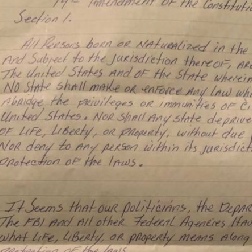 14th Amendment of the Constitution
Section 1.
All Persons born or Naturalized in the
And Subject to the Jurisdiction thereof, are
The United States and of the State wherein
No State shall make or enforce any Law which
Abridge the privileges or immunities of Ci
United States. Nor shall Any State deprive
of Life, Liberty, or property, without due
Nor deny to Any person within its jurisdictio
protection of the laws.
It Seems that our politicians, the Depar
The FBI and All other Federal Agencies Hav
what Life, Liberty, or property means along